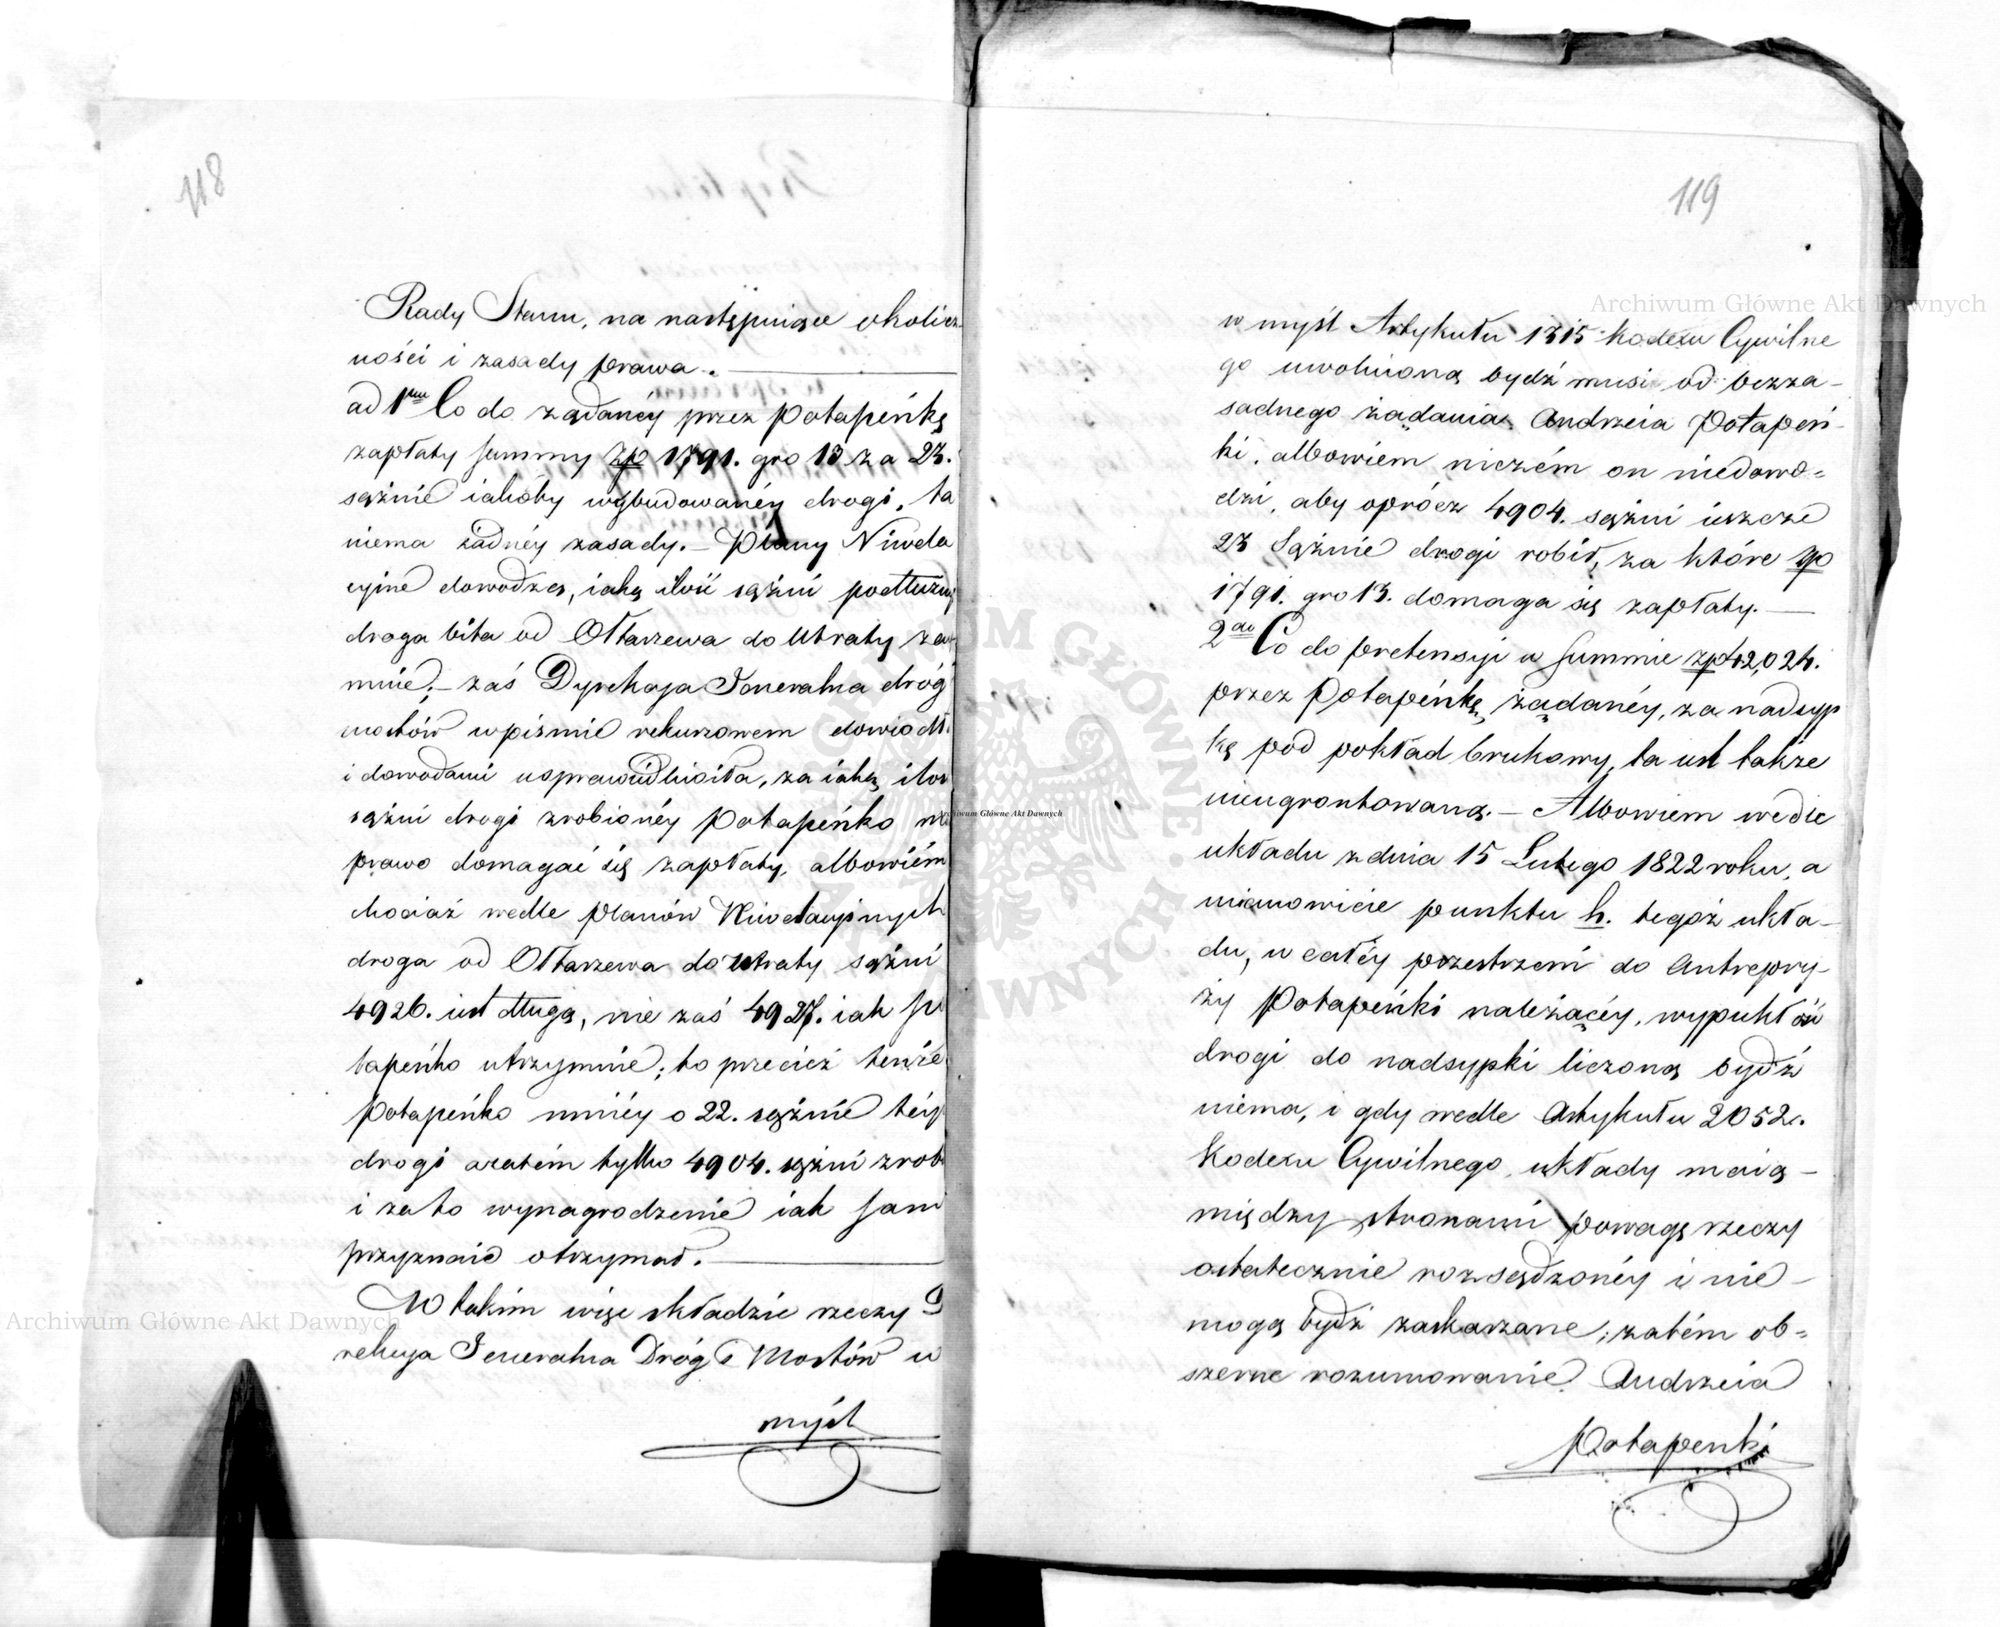 118
Rady Stanu, na następuiące okolicz-
ności i zasady prawa. —
ad 1mum Co do żądanéy przez Potapeńkę
zapłaty summy zp 1791. gro 13 za 23.
sążnie iakoby wybudowanéy drogi, ta
niema żadnéy zasady. — Plany Niwela
cyine dowodzą, iaką ilość sążni podłużn
droga bita od Ołtarzewa do Utraty za
muie, — zaś Dyrekcya Jeneralna dróg
mostów w piśmie rekursowem dowiodł
i dowodami usprawiedliwiła, za iaką ilo
sążni drogi zrobionéy Potapeńko m
prawo domagać się zapłaty, albowiém
chociaż wedle planów Niwelacyinych
droga od Ołtarzewa do Utraty sążni
4926. iest długa, nie zaś 4927. iak Po
tapeńko utrzymuie; to przecież tenże
Potapeńko mniéy o 22. sążnie téy
drogi a zatém tylko 4904. sążni zrob
i za to wynagrodzenie iak sam
przyznaie otrzymał. —
W takim więc składzie rzeczy D
rekcya Jeneralna Dróg i Mostów w
myśl
119
w myśl Artykułu 1315 Kodexu Cywilne
go uwolnioną bydź musi od bezza-
sadnego żądania Andrzeia Potapeń-
ki, albowiem niczém on niedowo=
dzi, aby oprócz 4904. sążni ieszcze
23 Sążnie drogi robił, za które zp
1791. gro 13. domaga się zapłaty. —
2do Co do pretensyi w summie zp 42,024.
przez Potapeńkę żądanéy, za nadsyp
kę pod pokład brukowy, ta iest także
nieugrontowaną. — Albowiem wedle
układu z dnia 15 Lutego 1822 roku, a
mianowicie punktu h. tegoż ukła-
du, w całéy przestrzeni do Antrepry-
zy Potapeńki należącéy, wypukłość
drogi do nadsypki liczoną bydź
niema, i gdy wedle Artykułu 2052.
Kodexu Cywilnego, układy maią —
między stronami powagę rzeczy
ostatecznie rozsądzonéy i nie —
mogą bydź zaskarzane; zatém ob=
szerne rozumowanie Andrzeia
Potapenki
Archiwum Główne Akt Dawnych
Archiwum Główne Akt Dawnych
Archiwum Główne Akt Dawnych